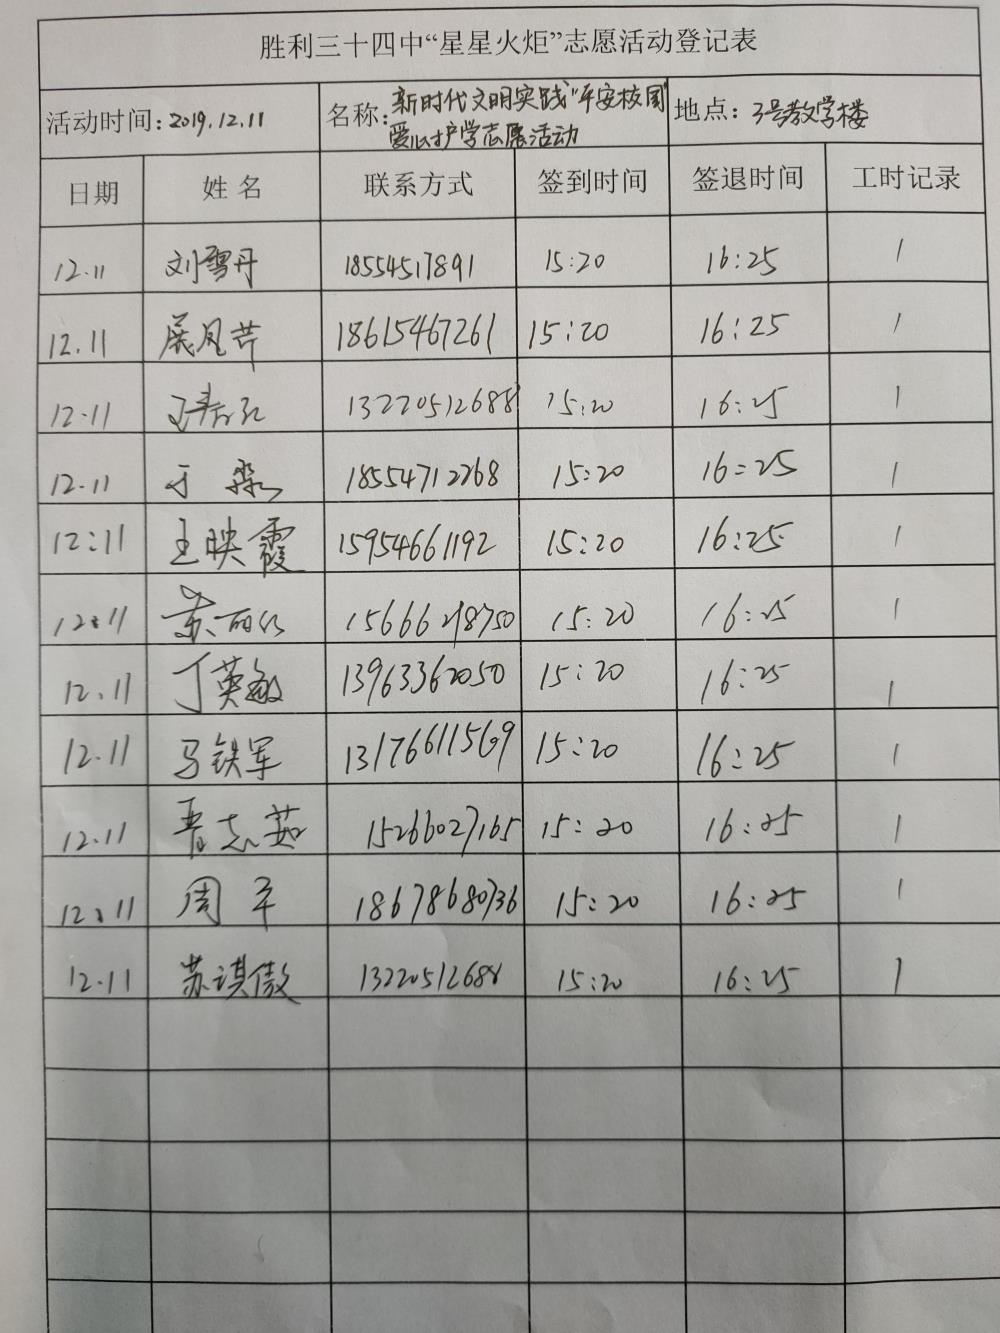 胜利三十四中“星星火炬”志愿活动登记表
活动时间:2019.12.11 名称:新时代文明实践"平安校园" 地点:3号教学楼
爱心护学志愿活动
日期 姓名 联系方式 签到时间 签退时间 工时记录
12.11 刘雪丹 18554517891 15:20 16:25 1
12.11 展凤芹 18615467261 15:20 16:25 1
12.11 13220512688 15:20 16:25 1
12.11 于淼 18554712268 15:20 16:25 1
12:11 王映霞 15954661192 15:20 16:25 1
12:11 苏丽红 15666218750 15:20 16:25 1
12.11 丁英敏 13963362050 15:20 16:25 1
12.11 马铁军 13176611569 15:20 16:25 1
12.11 志茹 15266027165 15:20 16:25 1
12.11 周平 18678680736 15:20 16:25 1
12.11 苏谋傲 13220512688 15:20 16:25 1